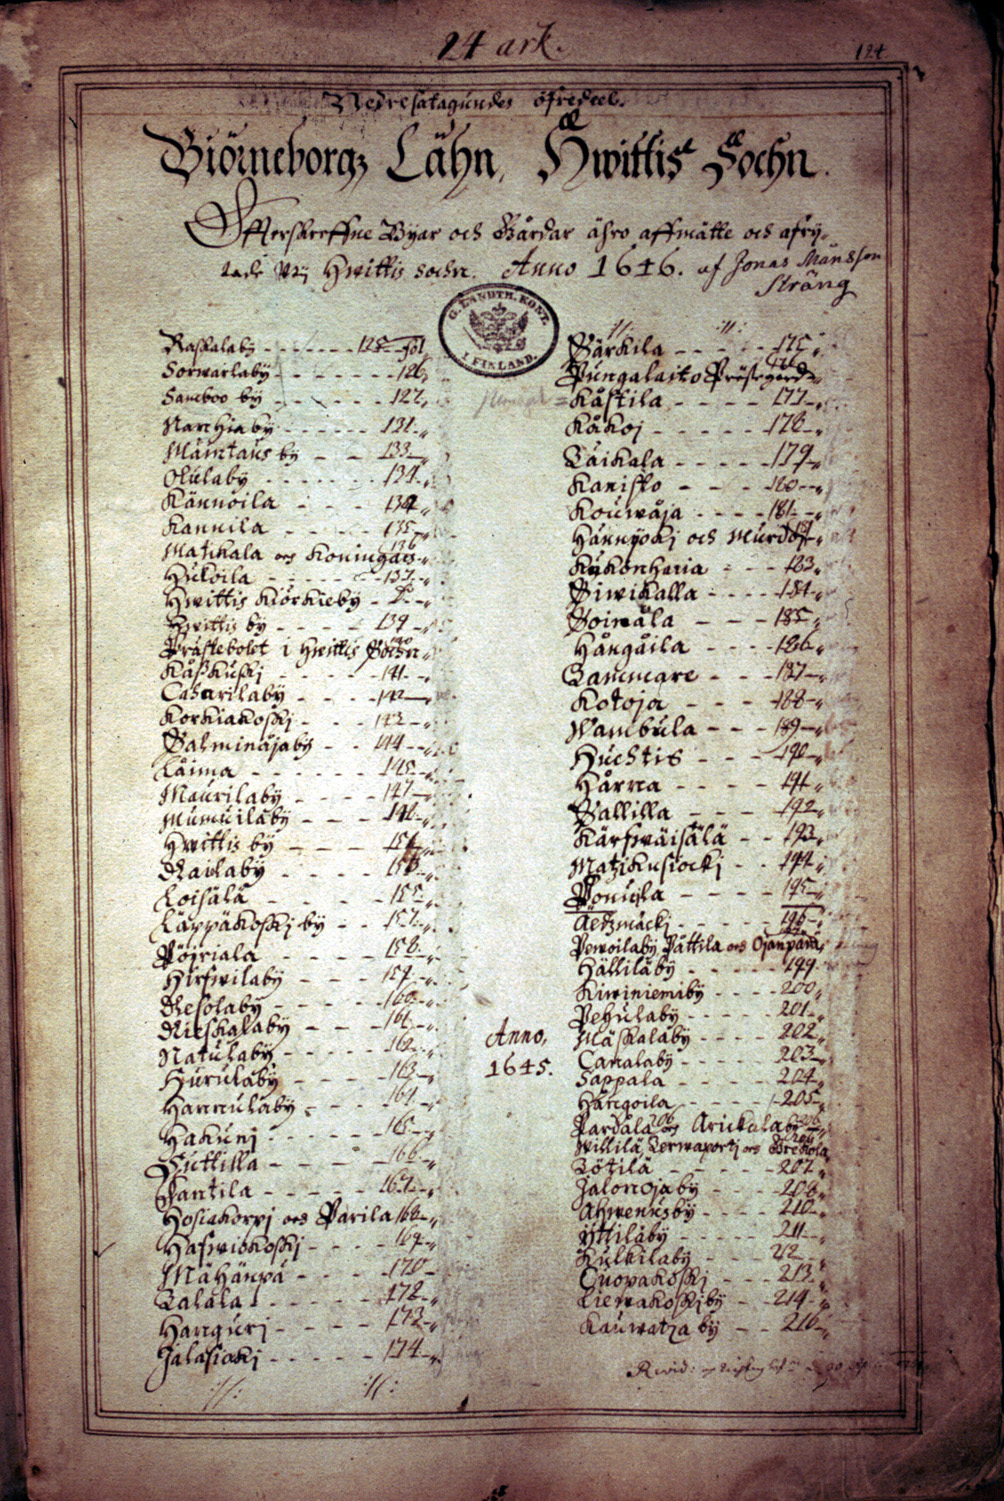 24 ark.
124
Nedresatagundes öfredeel.
Biörneborgz Lähn, Hwittis Sochn.
Effterskreffne Byar och Gårdar ähro affmätte och afry-
tade Uti Hwittis sochn. Anno 1646. af Jonas Månsson
Sträng
G. LANDTM. KONT. I FINLAND.
Raskalaby 125 fol
Sorwarlaby 126
Samboo by 127
Narchia by 131
Mämtäus by 133
Olulaby 134
Kännöila 134
Kannila 135
Matikala och Koningais 136
Hukoila 137
Hwittis Kiörkieby
Hwittis by 139
Prästebolet i Hwittis Sochn 140
Kåsskuskj 141
Casarilaby 142
Korkiakoskj 143
Salminäjaby 144
Laima 145
Maurilaby 147
Mumuilaby 148
Hwittis by 154
Railaby 15
Loisälä 155
Läppäkoskj by 157
Pöjriala 158
Hirfwilaby 159
Resolaby 160
Rieskalaby 161
Natulaby 162
Hurulaby 163
Hannulaby 164
Hakuni 165
Suttilla 166
Pantila 167
Hosiakorpi och Parila 168
Hafwiokoskj 169
Mähänpä 170
Talala 172
Hanguri 173
Jalasiokj 174
Särkila 175
Pungalaito Prästegård 176
Kåstila 177
Kåkoj 178
Taikala 179
Kanisto 180
Kouwåja 181
Hännijokj och Murdo
Kukonharia 183
Siwikalla 184
Soinäla 185
Hångåila 186
Tammare 187
Kotoja 188
Wambula 189
Huchtis 190
Hårna 191
Sallilla 192
Kärfwäisälä 193
Matzikusiockj 194
Ponuila 195
Aetzmäckj 196
Pewoilaby Pättila och Ojanpärä
Hällilåby 199
Kiwiniemiby 200
Pehulaby 201
Mäskalaby 202
Canalaby 203
Sappala 204
Hangoila 205
Pardala och Arickalaby 206
Willilä, Terwaportj och Brekola
Tötilä 207
Jalonojaby 208
Ahwenusby 210
Yttiläby 211
Kulkilaby 212
Cuopakoskj 213
Liewakoskjby 214
Kauwatza by 216
Anno,
1645.